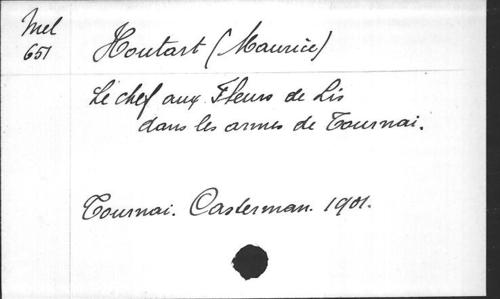 Mel
651
Houtart (Maurice)
Le chef aux Fleurs de Lis
dans les armes de Tournai.
Tournai. Casterman. 1901.